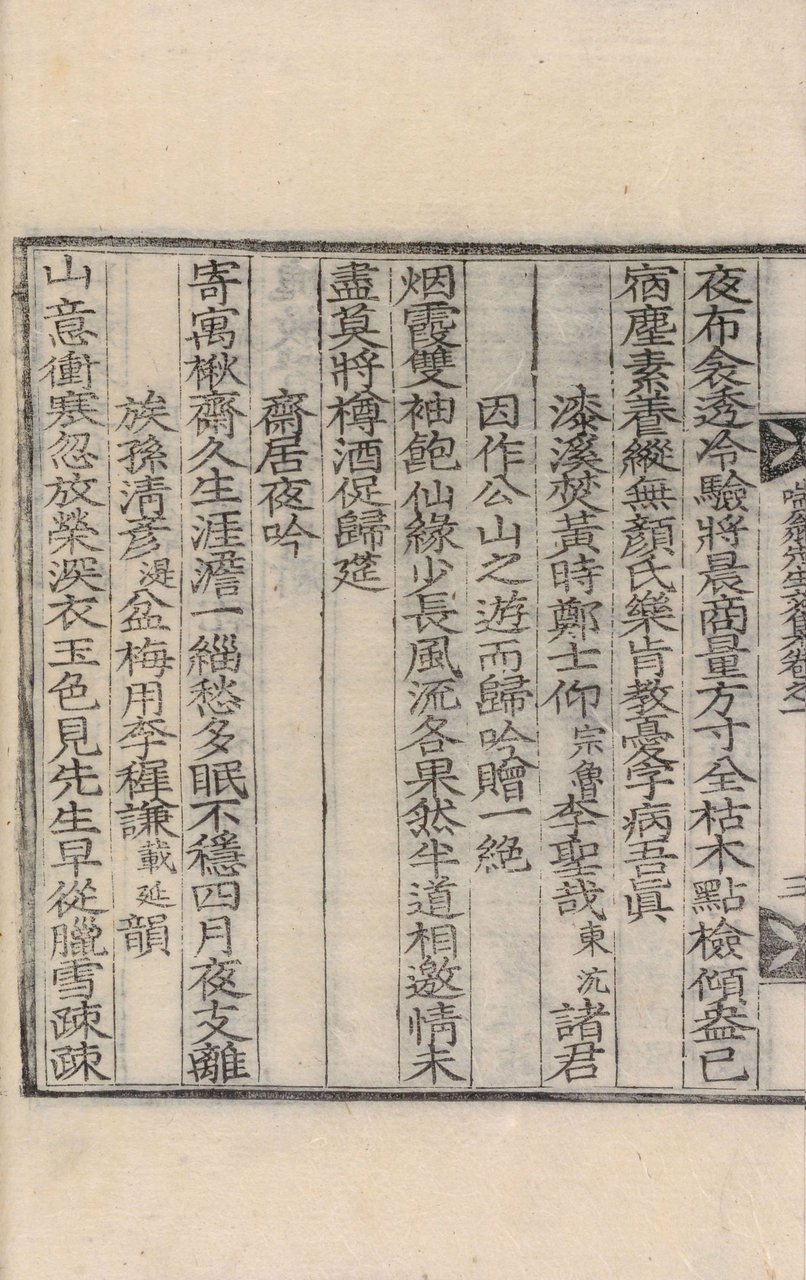 喘翁先生文集卷之一
三
夜布衾透冷驗將晨商量方寸全枯木點檢傾盎已
宿塵素養縱無顏氏樂肯教憂字病吾眞
漆溪焚黃時鄭士仰宗魯李聖哉東沆諸君
因作公山之遊而歸吟贈一絶
烟霞雙袖飽仙緣少長風流各果然半道相邀情未
盡莫將樽酒促歸筵
齋居夜吟
寄寓楸齋久生涯澹一緇愁多眠不穩四月夜支離
族孫淸彥湜盆梅用李穉謙載延韻
山意衝寒忽放榮深衣玉色見先生早從臘雪疎疎